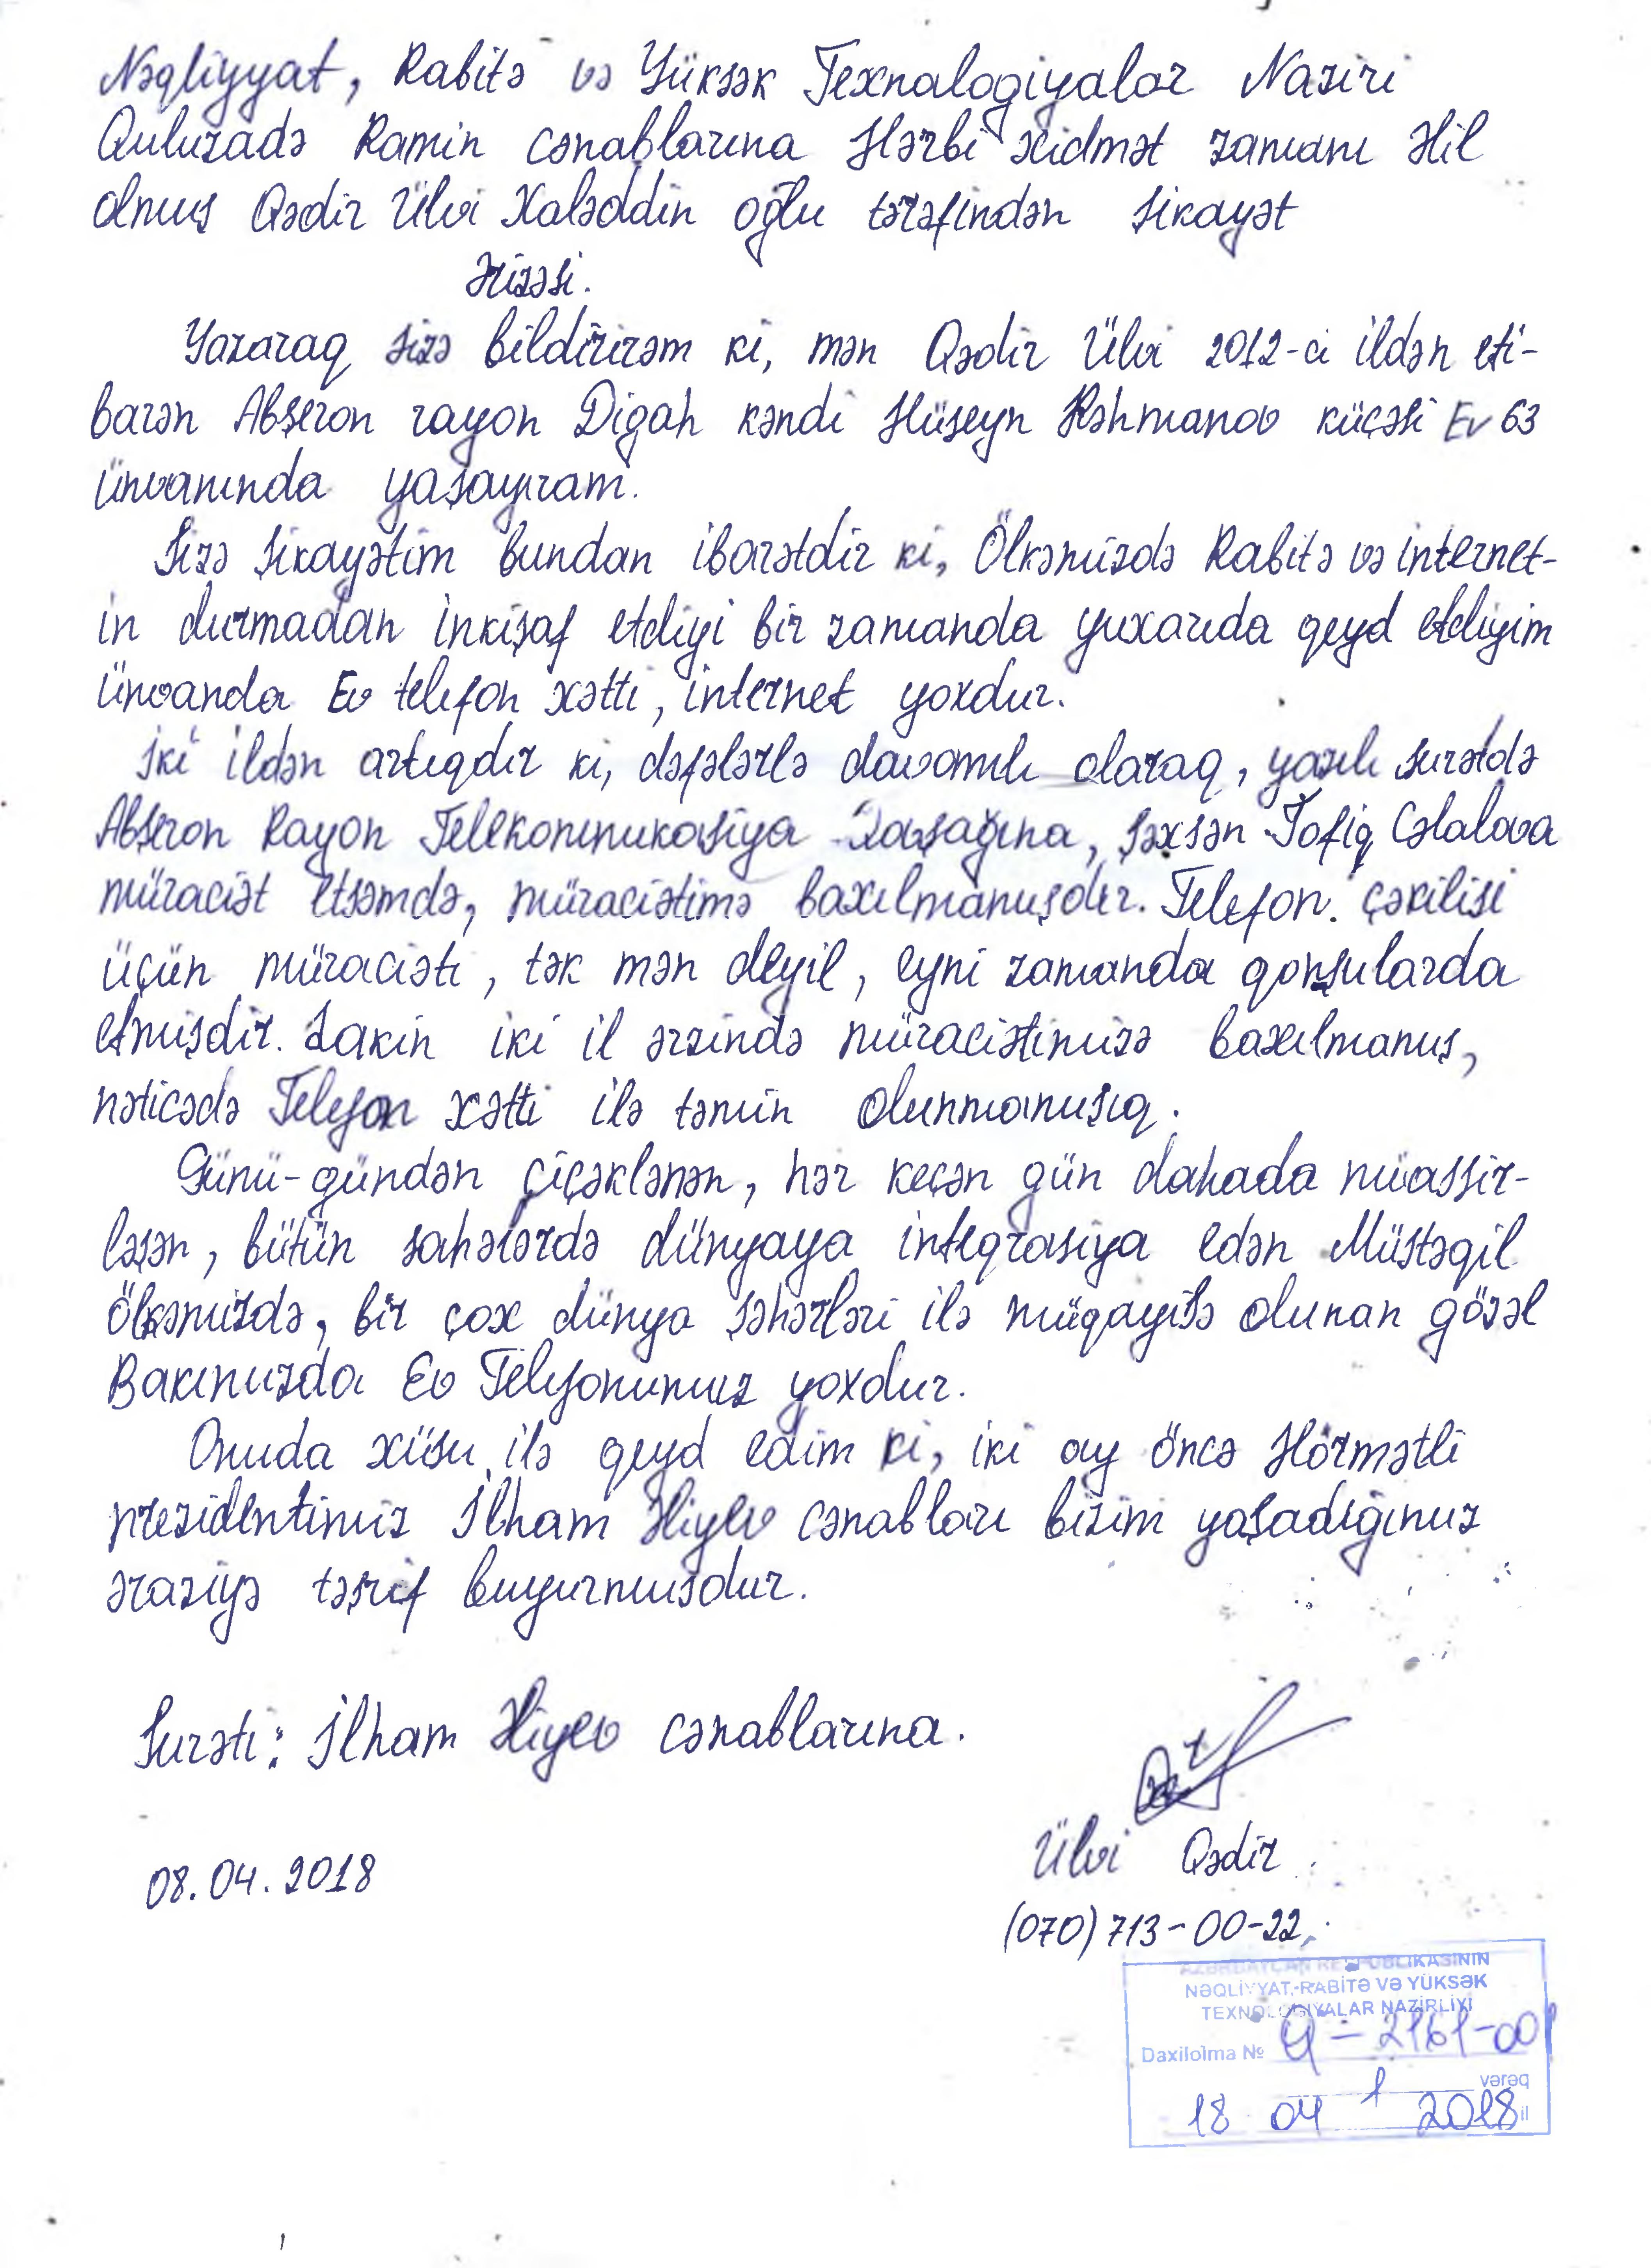 Nəqliyyat, Rabitə və Yüksək Texnalogiyalar Naziri
Quluzadə Ramin cənablarına Hərbi xidmət zamanı Əlil
olmuş Qədir Ülvi Xaləddin oğlu tərəfindən şikayət
Ərizəsi.
Yazaraq sizə bildirirəm ki, mən Qədir Ülvi 2012-ci ildən eti-
barən Abşeron rayon Digah kəndi Hüseyn Rəhmanov küçəsi Ev 63
ünvanında yaşayıram.
Sizə şikayətim bundan ibarətdir ki, Ölkəmizdə Rabitə və internet-
in durmadan inkişaf etdiyi bir zamanda yuxarıda qeyd etdiyim
ünvanda Ev telefon xətti, internet yoxdur.
İki ildən artıqdır ki, dəfələrlə davamlı olaraq, yazılı surətdə
Abşeron Rayon Telekommukasiya Qovşağına, şəxsən Tofiq Cəlalova
müraciət etsəmdə, müraciətimə baxılmamışdır. Telefon çəkilişi
üçün müraciəti, tək mən deyil, eyni zamanda qonşularda
etmişdir. Lakin iki il ərzində müraciətimizə baxılmamış,
nəticədə Telefon xətti ilə təmin olunmamışıq.
Günü-gündən çiçəklənən, hər keçən gün dahada müassir-
ləşən, bütün sahələrdə dünyaya inteqrasiya edən Müstəqil
Ölkəmizdə, bir çox dünya şəhərləri ilə müqayisə olunan gözəl
Bakımızda Ev Telefonumuz yoxdur.
Onuda xüsu ilə qeyd edim ki, iki ay öncə Hörmətli
prezidentimiz İlham Əliyev cənabları bizim yaşadığımız
əraziyə təşrif buyurmuşdur.
Surəti: İlham Əliyev cənablarına.
Ülvi Qədir
08.04.2018
(070) 713-00-22
AZƏRBAYCAN RESPUBLİKASININ
NƏQLİYYAT, RABİTƏ VƏ YÜKSƏK
TEXNOLOGİYALAR NAZİRLİYİ
Daxilolma № Q-2161-00
1 vərəq
18 04 2018 il